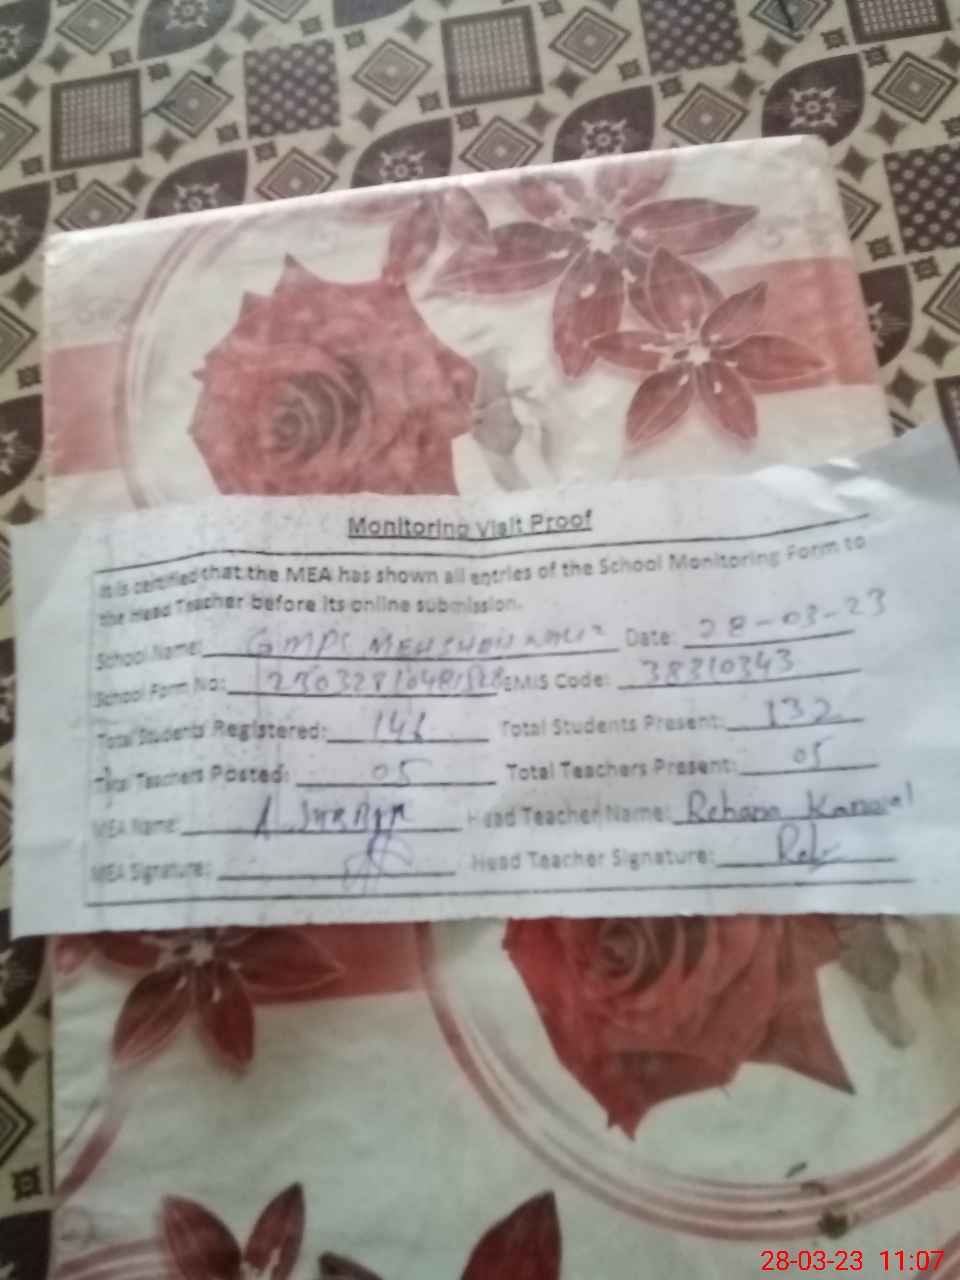 Monitoring Visit Proof
It is certified that the MEA has shown all entries of the School Monitoring Form to
the Head Teacher before its online submission.
School Name: GMPS Date: 28-03-23
School Form No: EMIS Code: 38310343
Total Students Registered: 146 Total Students Present: 132
Total Teachers Posted: 05 Total Teachers Present: 05
MEA Name: A Head Teacher Name: Rehana Kanwal
MEA Signature: Head Teacher Signature:
28-03-23 11:07